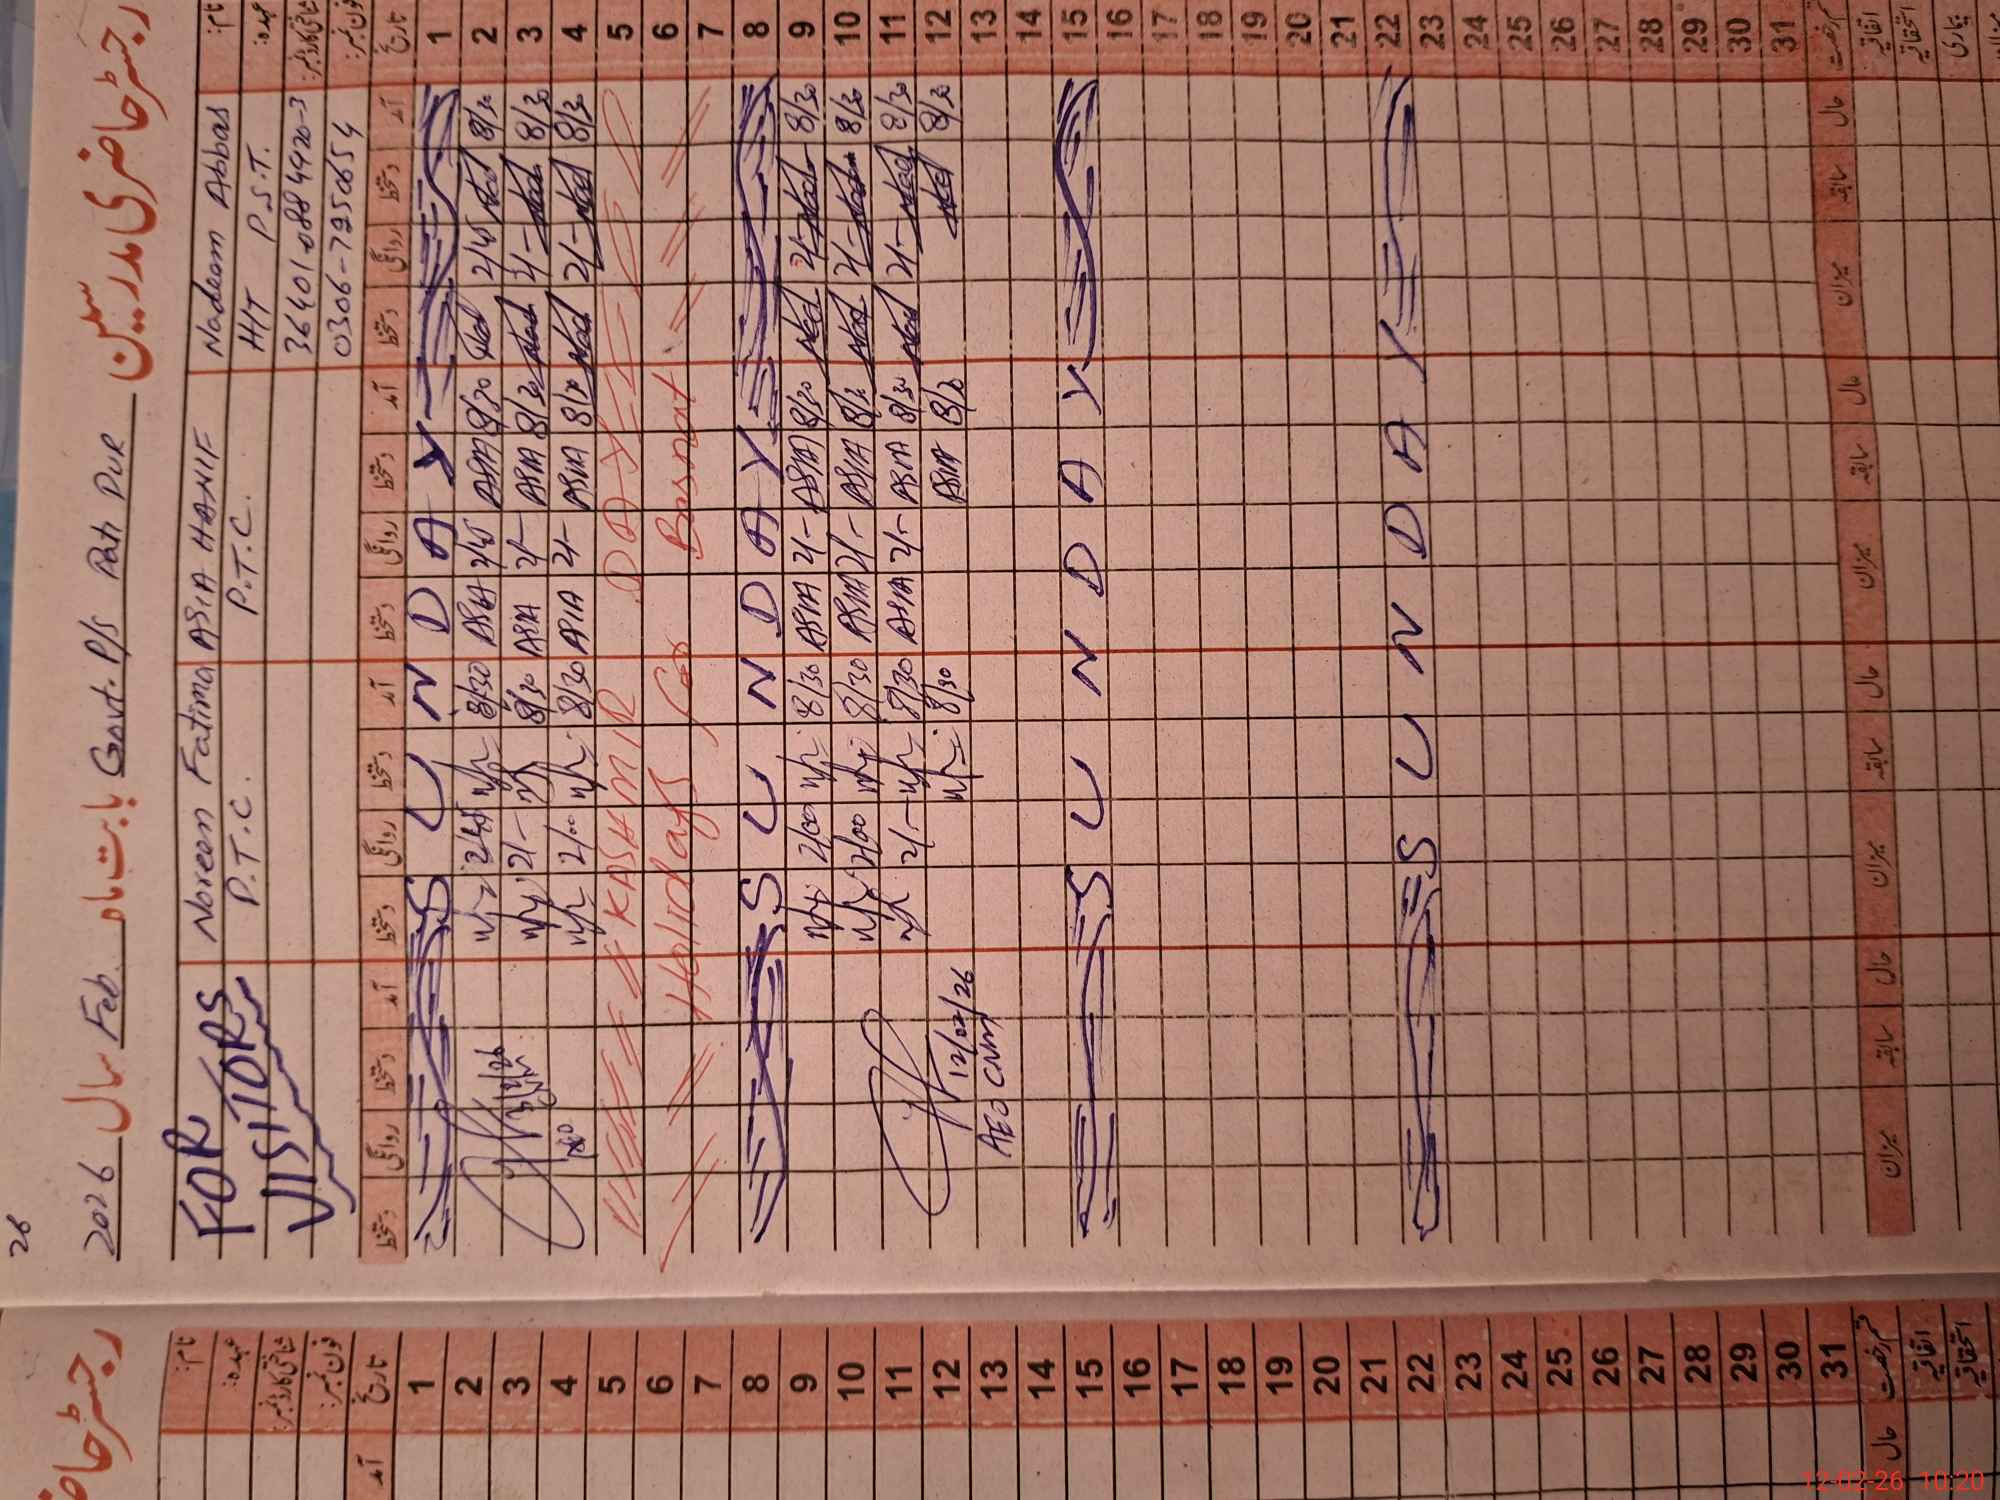 26
رجسٹر حاضری مدرسین
بابت ماہ Feb. سال 2026 Govt. P/S Pati Pur
نام: Nadeem Abbas ASIA HANIF Noreen Fatima FOR VISITORS
عہدہ: H/T P.S.T. P.T.C. P.T.C.
شناختی کارڈ نمبر: 36401-0884420-3
فون نمبر: 0306-7925654
تاریخ آمد دستخط روانگی دستخط آمد دستخط روانگی دستخط آمد دستخط روانگی دستخط آمد دستخط روانگی دستخط
1 S U N D A Y
2 8/30 Ned 2/45 Ned 8/30 ASIA 2/45 ASIA 8/30 2/45
3 8/30 Ned 2/- Ned 8/30 ASIA 2/- ASIA 8/30 2/-
4 8/30 Ned 2/- Ned 8/30 ASIA 2/- ASIA 8/30 2/00
5 KASHMIR DAY
6 Holidays for Basnat
7
8 S U N D A Y
9 8/30 Ned 2/- Ned 8/30 ASIA 2/- ASIA 8/30 2/00
10 8/30 Ned 2/- Ned 8/30 ASIA 2/- ASIA 8/30 2/00
11 8/30 Ned 2/- Ned 8/30 ASIA 2/- ASIA 8/30 2/-
12 8/30 Ned 8/30 ASIA 8/30 12/02/26
13 AEO CNM
14
15 S U N D A Y
16
17
18
19
20
21
22 S U N D A Y
23
24
25
26
27
28
29
30
31
قسم رخصت حال سابقہ میزان حال سابقہ میزان حال سابقہ میزان حال سابقہ میزان
اتفاقیہ
استحقاقیہ
بیماری
رجسٹر حاضر
نام:
عہدہ:
شناختی کارڈ نمبر:
فون نمبر:
تاریخ آمد
1
2
3
4
5
6
7
8
9
10
11
12
13
14
15
16
17
18
19
20
21
22
23
24
25
26
27
28
29
30
31
قسم رخصت حال
اتفاقیہ
استحقاقیہ
12-02-26 10:20